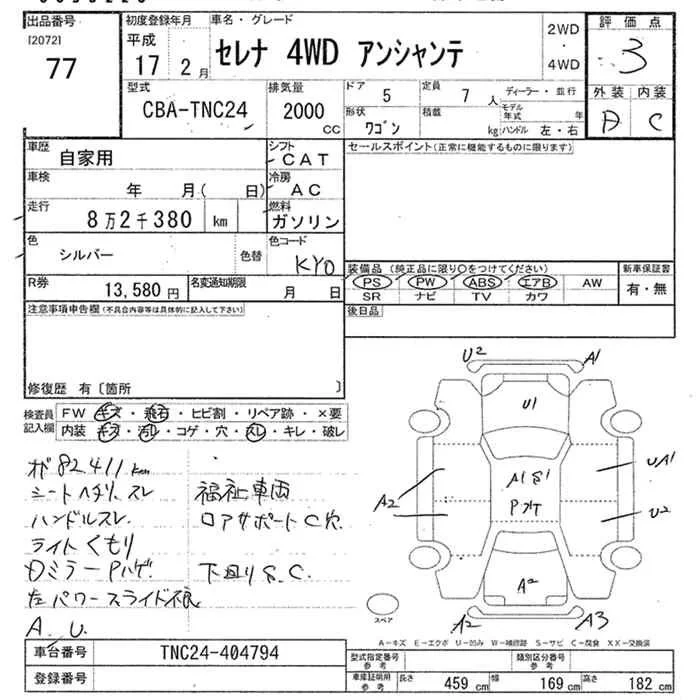 出品番号
[2072]
77
初度登録年月
平成
17 2月
車名・グレード
セレナ 4WD アンシャンテ
2WD
・
4WD
評価点
3
外装 内装
A C
型式
CBA-TNC24
排気量
2000
CC
ドア 5
定員 7 人
ディーラー・並行
形状 ワゴン
積載 kg
モデル年式 年
ハンドル 左・右
車歴 自家用
シフト CAT
車検 年 月( 日)
冷房 AC
走行 8万2千380 km
燃料 ガソリン
色 シルバー
色替
色コード KYO
R券 13,580 円
名変通知期限 月 日
セールスポイント(正常に機能するものに限ります)
装備品(純正品に限り○をつけてください)
新車保証書
PS PW ABS エアB AW
有・無
SR ナビ TV カワ
後日品
注意事項申告欄(不具合内容等は具体的に記入して下さい)
修復歴 有〔箇所 〕
検査員記入欄
FW キズ・飛石・ヒビ割・リペア跡・×要
内装 キズ・汚レ・コゲ・穴・スレ・キレ・破レ
メ 82,411km
シートヘタリ、スレ
ハンドルスレ
ライトくもり
Dミラー Pハゲ
左パワースライド不良
A. U.
福祉車両
ロアサポートC穴
下回りS.C.
U2
A1
U1
A2
UA1
U2
A2
A2
A3
スペア
A−キズ E−エクボ U−凹み W−補修跡 S−サビ C−腐食 XX−交換済
車台番号 TNC24-404794
登録番号
型式指定番号 参考
類別区分番号 参考
車庫証明用 参考
長さ 459 cm
幅 169 cm
高さ 182 cm